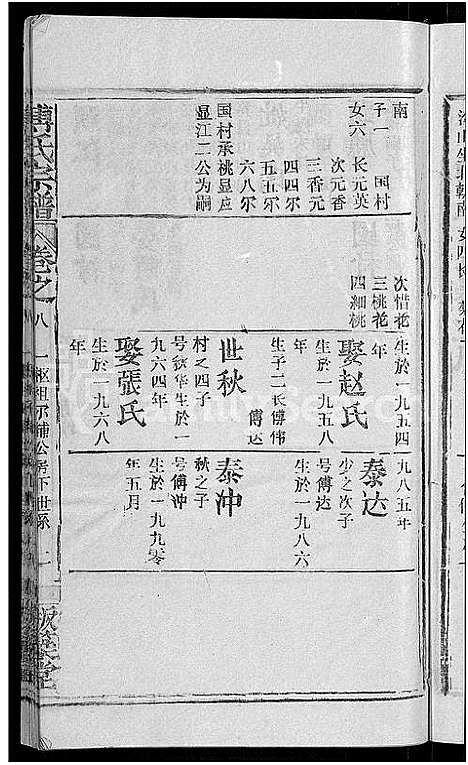 南
子一 国村
女六 长元英
次元香
三香元
四四尔
五五尔
六八尔
国村承桃显应
显江二公为嗣
次惜花
三桃花
四细桃
生於一九五四
年
娶赵氏
生於一九五八
年
生子二长傅伟
傅达
世秋
村之四子
号秋华生於一
九六四年
娶張氏
生於一九六八
年
九八五年
泰达
少之次子
号傅达
生於一九八六
泰冲
秋之子
号傅冲
生於一九九零
年五月
傅氏宗譜
卷之八
公房下世系